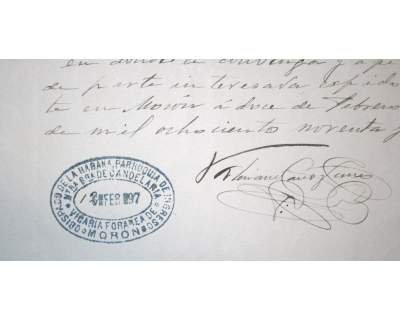 en donde convenga y a pe
de parte interesada expido
te en Morón á doce de Febrero
de mil ochociento noventa y
OBISPADO DE LA HABANA PARROQUIA DE INGRESO
Nª SRA DE CANDELARIA
12 FEB 97
VICARIA FORANEA DE
MORON